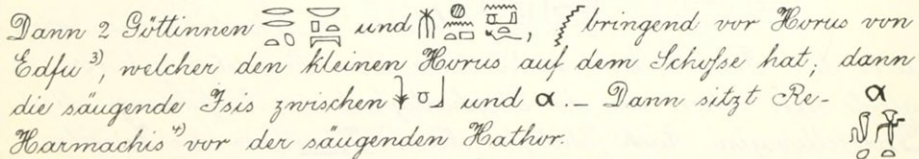 Dann 2 Göttinnen und bringend vor Horus von
Edfu ³⁾, welcher den kleinen Horus auf dem Schoſse hat; dann
die säugende Isis zwischen und α. – Dann sitzt Re-
Harmachis ⁴⁾ vor der säugenden Hathor.